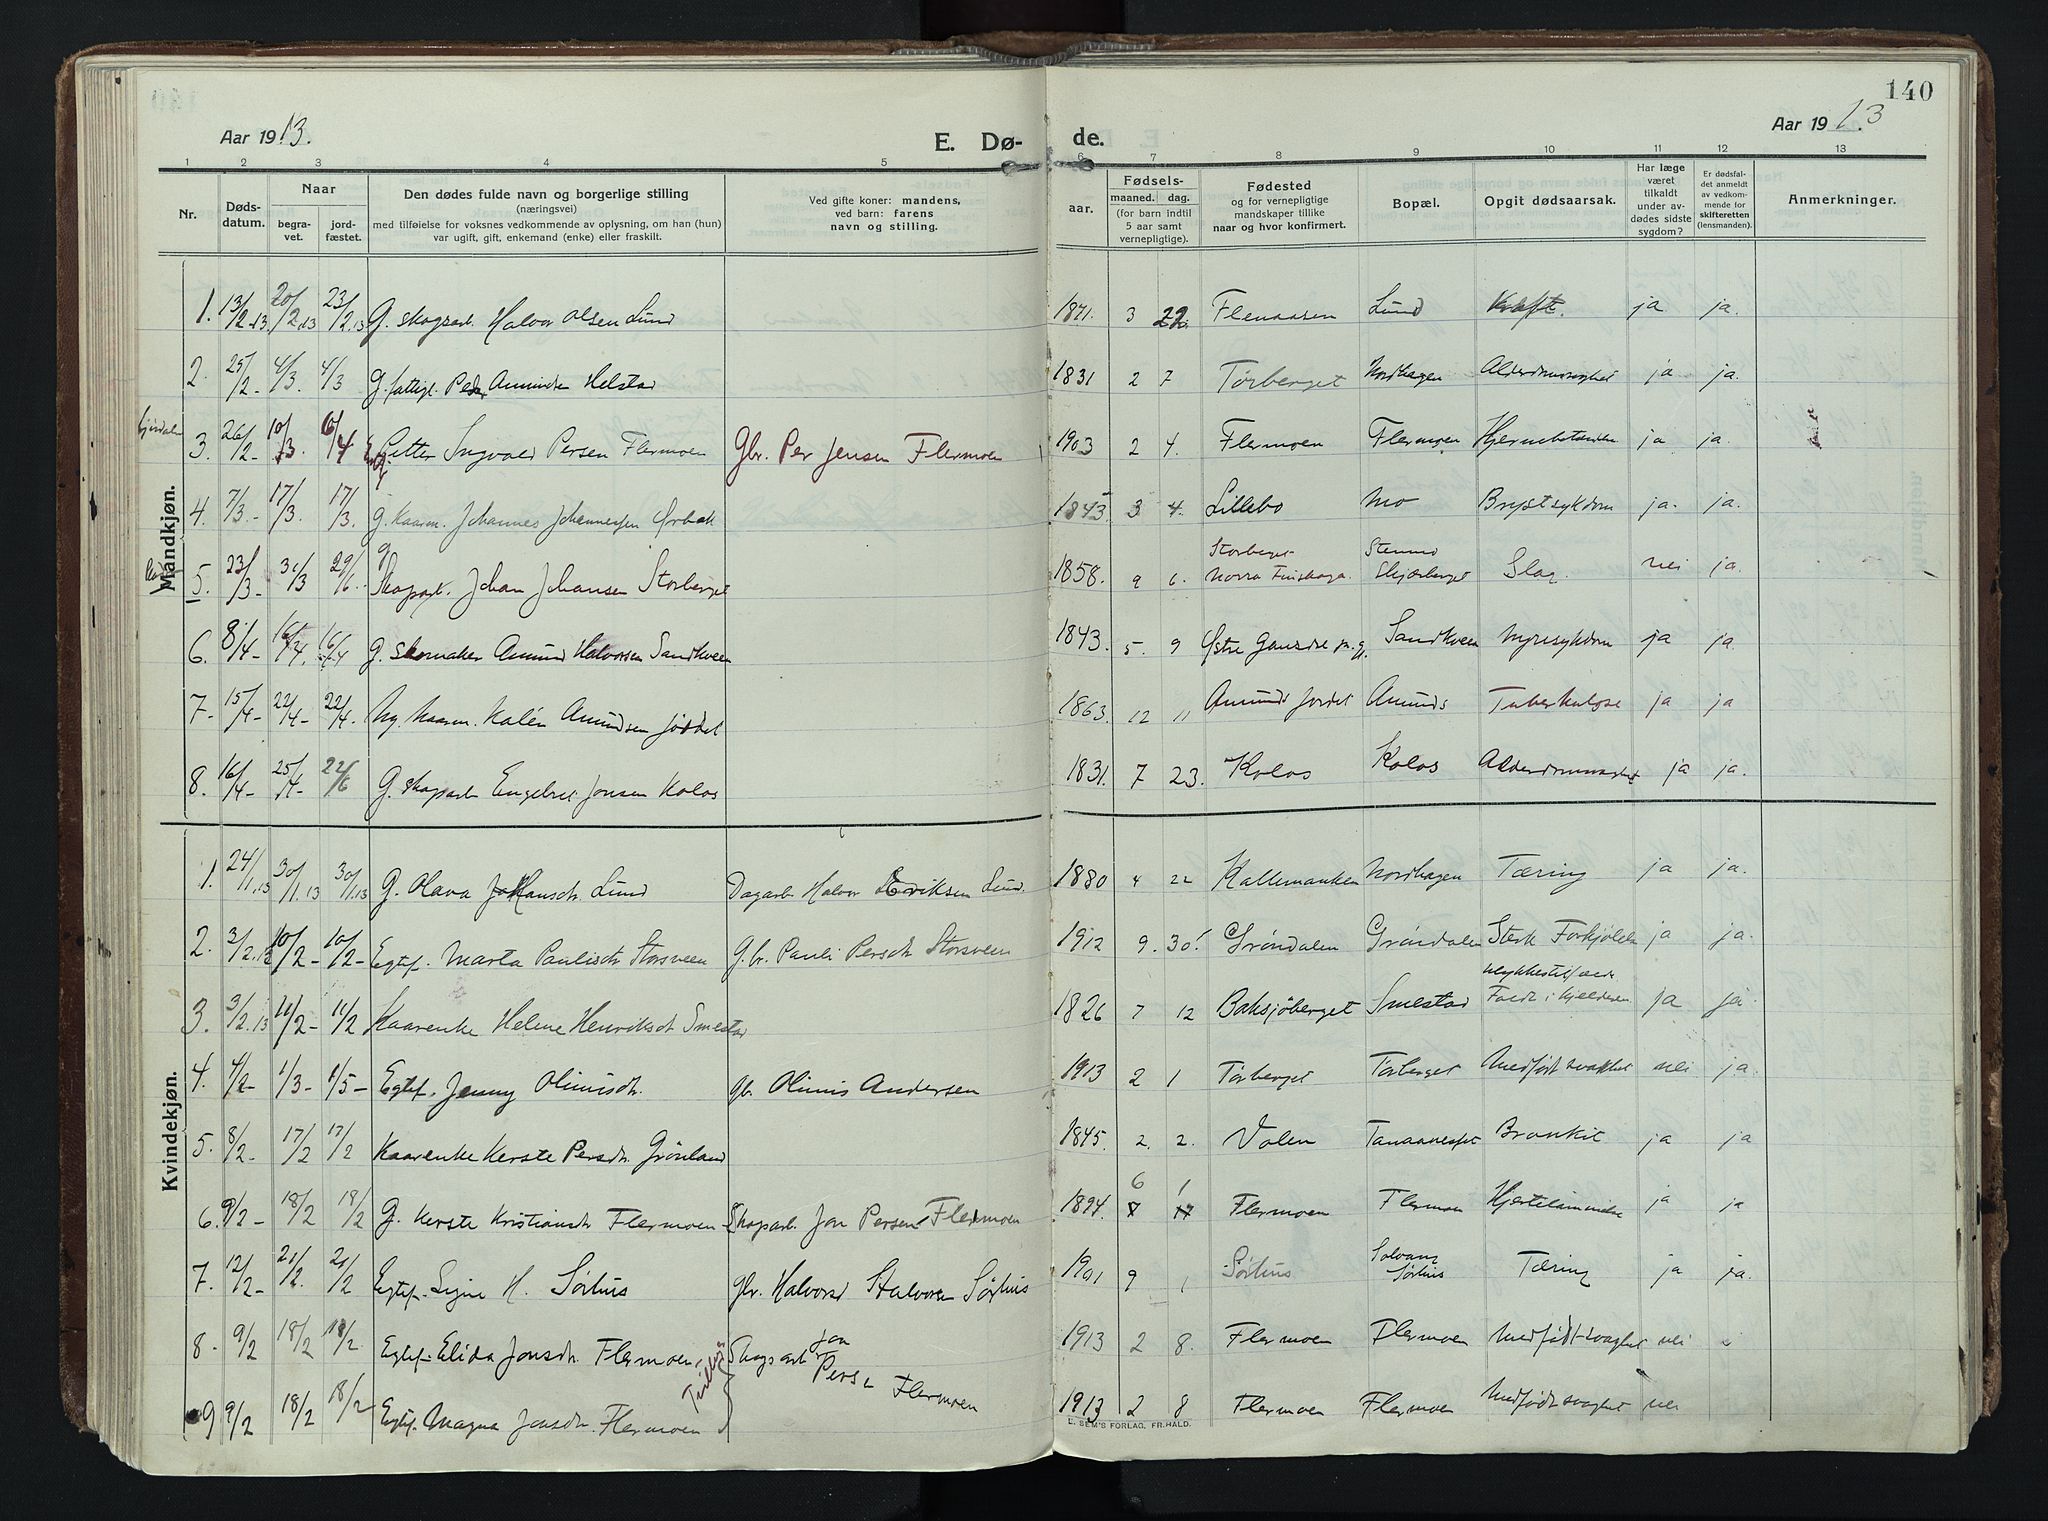 140
Aar 1913.
E. Dø- de.
Aar 1913
1 2 3 4 5 6 7 8 9 10 11 12 13
Nr. Dødsdatum. Naar begravet. jordfæstet. Den dødes fulde navn og borgerlige stilling (næringsvei) med tilføielse for voksnes vedkommende av oplysning, om han (hun) var ugift, gift, enkemand (enke) eller fraskilt. Ved gifte koner: mandens, ved barn: farens navn og stilling. aar. Fødsels- maaned. dag. (for barn indtil 5 aar samt vernepligtige). Fødested og for vernepligtige mandskaper tillike naar og hvor konfirmert. Bopæl. Opgit dødsaarsak. Har læge været tilkaldt under avdødes sidste sygdom? Er dødsfaldet anmeldt av vedkommende for skifteretten (lensmanden). Anmerkninger.
Mandkjøn.
1. 13/2.13. 20/2.13 23/2.13 G. skogsarb. Halvor Olsen Lund 1871. 3 22. Flenaasen Lund Kræft. ja ja.
2. 25/2- 4/3. 4/3 G. fattigl. Peder Amundsen Helstad 1831 2 7 Törberget Nordhagen Alderdomssvaghet ja ja.
3. 26/2- 10/3. Petter Ingvald Persen Flermoen Gbr. Per Jensen Flermoen 1903 2 4. Flermoen Flermoen ja ja.
4. 7/3.- 17/3. 17/3. G. Kaarm. Johannes Johannessen Ørbæk 1843. 3 4. Lillebo Mo Brystsykdom ja. ja.
5. 23/3- 31/3 29/6. g Skogsarb. Johan Johansen Storberget 1858. 9 6. Storberget Norra Finskoga. Skjærberget Slag. nei ja.
6. 8/4- 16/4. 16/4 G. skomaker Amund Halvorsen Sandkveen 1843. 5. 9 Sandkveen Nyresykdom ja ja.
7- 15/4- 22/4- 22/4. Amundsen Jordet 1863. 12 11 Amunds Jordet Amunds Tuberkulose ja ja
8. 16/4- 25/4- 22/6 G. skogsarb Engebret Jonsen Kolos 1831. 7 23. Kolos Kolos Alderdomssvaghet ja ja.
Kvindekjøn.
1. 24/1.13 30/1.13 30/1.13 G. Olava Johansdr. Lund Dagarb. Halvor Eriksen Lund. 1880 4 22 Kallemanken Nordhagen Tæring ja ja.
2. 3/2.13 10/2- 10/2- Egtef. Marta Paulisdr. Storsveen G.br. Pauli Persen Storsveen 1912 9. 30. Gröndalen Gröndalen Sterk Forkjølelse ja ja.
3. 3/2.13 11/2- 11/2 Kaarenke Helene Henriksdt Smestad 1826 7 12 Baksjöberget Smestad Ulykkestilfælde Faldt i kjelderen ja ja.
4. 4/2- 1/3- 1/5- Egtef. Jenny Olinisdr. Gbr. Olinis Andersen 1913 2 1 Törberget Törberget Medfødt svakhet nei ja.
5. 8/2- 17/2 17/2 Kaarenke Kerste Persdr. Grönland 1845. 2. 2. Volen Tanaaneset Bronkit ja ja
6. 9/2- 18/2 18/2 G. Kerste Kristiansdr. Flermoen Skogsarb. Jon Persen Flermoen 1894. 6 1 Flermoen Flermoen Hjertelammelse ja ja
7. 12/2- 21/2. 21/2 Egtef. Signe H. Sörhus Gbr. Halvord Halvorsen Sörhus 1901 9 1 Sörhus Solvang Sörhus Tæring ja ja.
8. 9/2 18/2 18/2. Egtef. Elida Jonsdr. Flermoen Skogsarb Jon Persen Flermoen 1913 2 8. Flermoen Flermoen Medfødt svaghet nei
Tvillinger
9 9/2 18/2 18/2 Egtef. Magna Jonsdr. Flermoen 1913 2 8 Flermoen Flermoen Medfødt svaghet nei
E. SEM'S FORLAG, FR.HALD.